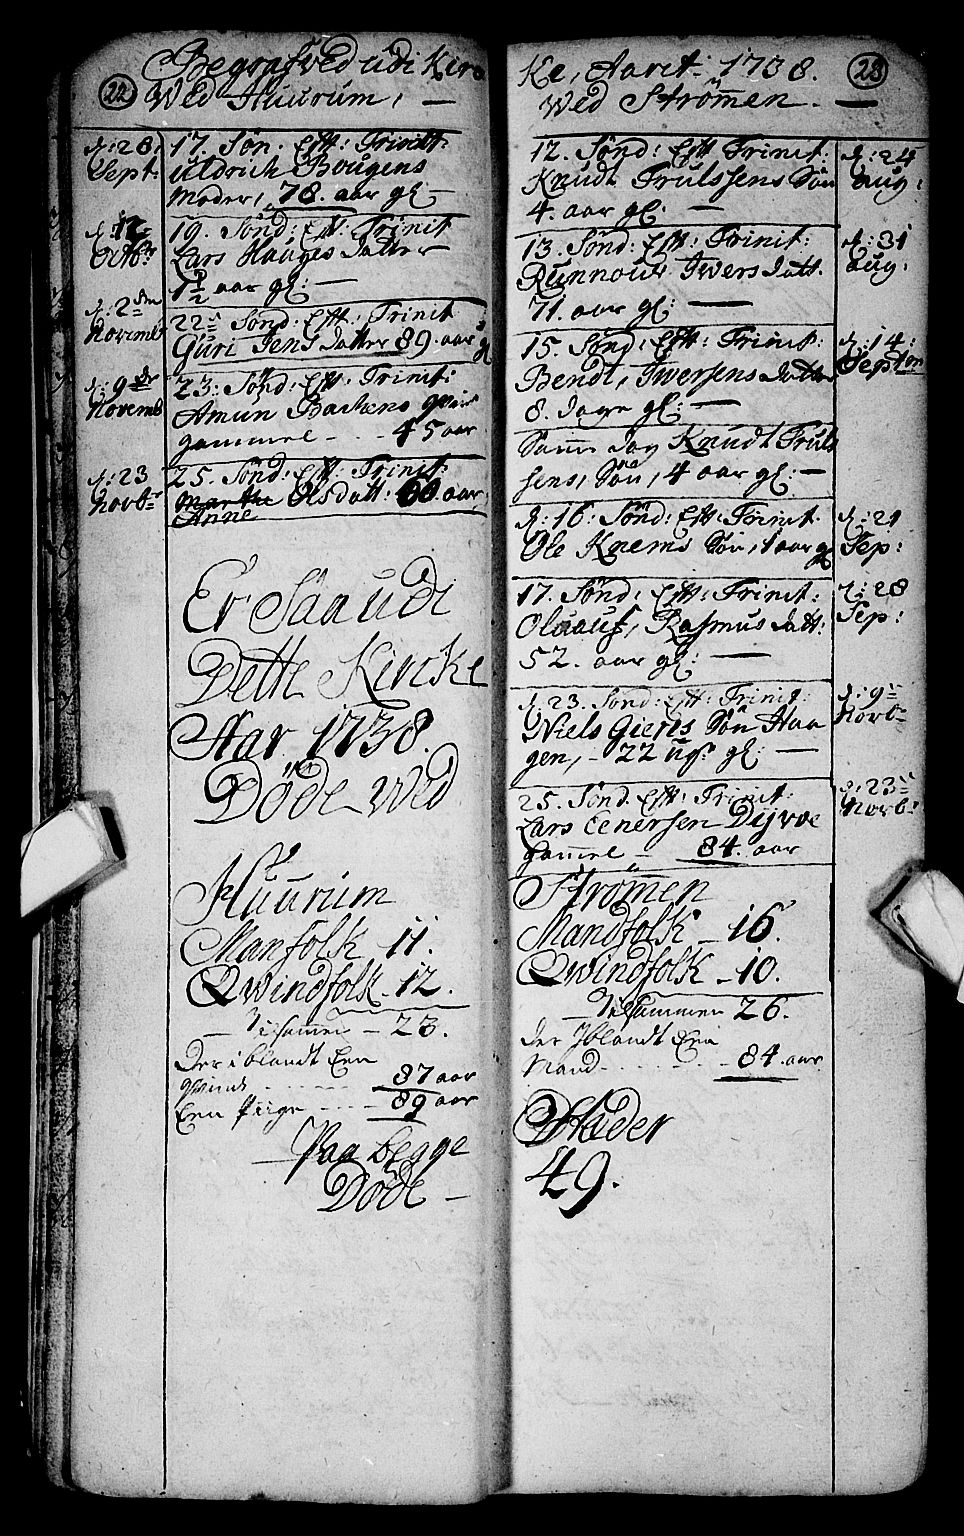 22
Begrafved udi Kirc
Wed Huurum, —
d: 28
Sept:
17. Søn. Efft: Trinit:
Uldrich Bougens
Moder, 78. aar gl —
d: 12
Octbr
19. Sønd: Eft: Trinit
Lars Hauges Datter
1 1/2 aar gl: —
d: 2den
Novemb
22 Sønd: Eft: Trinit
Guri Jens Datter 89. aar gl
d: 9de
Novemb
23: Sønd: Eft: Trinit:
Amun Bachens qvin
gammel - - - 45 aar
d: 23
Novbr
25. Sønd: Eft: Trinit:
Marthe Olsdatt: 60. aar,
Anne
Er Saa udi
Dette Kircke
Aar 1738.
Döde Wed
Huurum
Manfolk 11.
Qwindfolk - 12.
— Tilsamen - 23.
Der iblandt Een
qvinde - - - - 87 aar
Een Piige - - - - 89 aar
— Paa begge
Döde —
23
Ke, Aaret: 1738.
Wed Strømmen. —
12. Sønd: Eft Trinit:
Knudt Trulssens Søn
4. aar gl: —
d: 24
Aug:
13. Sønd: Eft: Trinit:
Runnoug Iwers datt.
71. aar gl: —
d: 31
Aug:
15. Sønd: Eft: Trinit:
Bendt, Iwersens datter
8. dage gl: —
d: 14:
Septbr
Samme Dag Knudt Truls
sens, Søn, 4 aar gl: —
d: 16: Sønd: Eft: Trinit.
Ole Knems Søn, 1 aar gl
d: 21
Sep:
17. Sønd: Eft: Trinit:
Olauf, Rasmus datt:
52. aar gl: —
d: 28
Sep:
d. 23. Sønd: Eft: Trinit:
Niels Gierts Søn Haa
gen, - 22 ugr gl: —
d: 9
Novbr
25. Sønd. Eft: Trinit:
Lars Eenersen Dyrøe
Gammel — 84. aar
d: 23
Novbr
Strömmen
Mandfolk - 16.
Qwindfolk - 10.
— Tilsammen 26.
Der Iblandt Een
Mand - - - - 84. aar
Stæder
49.